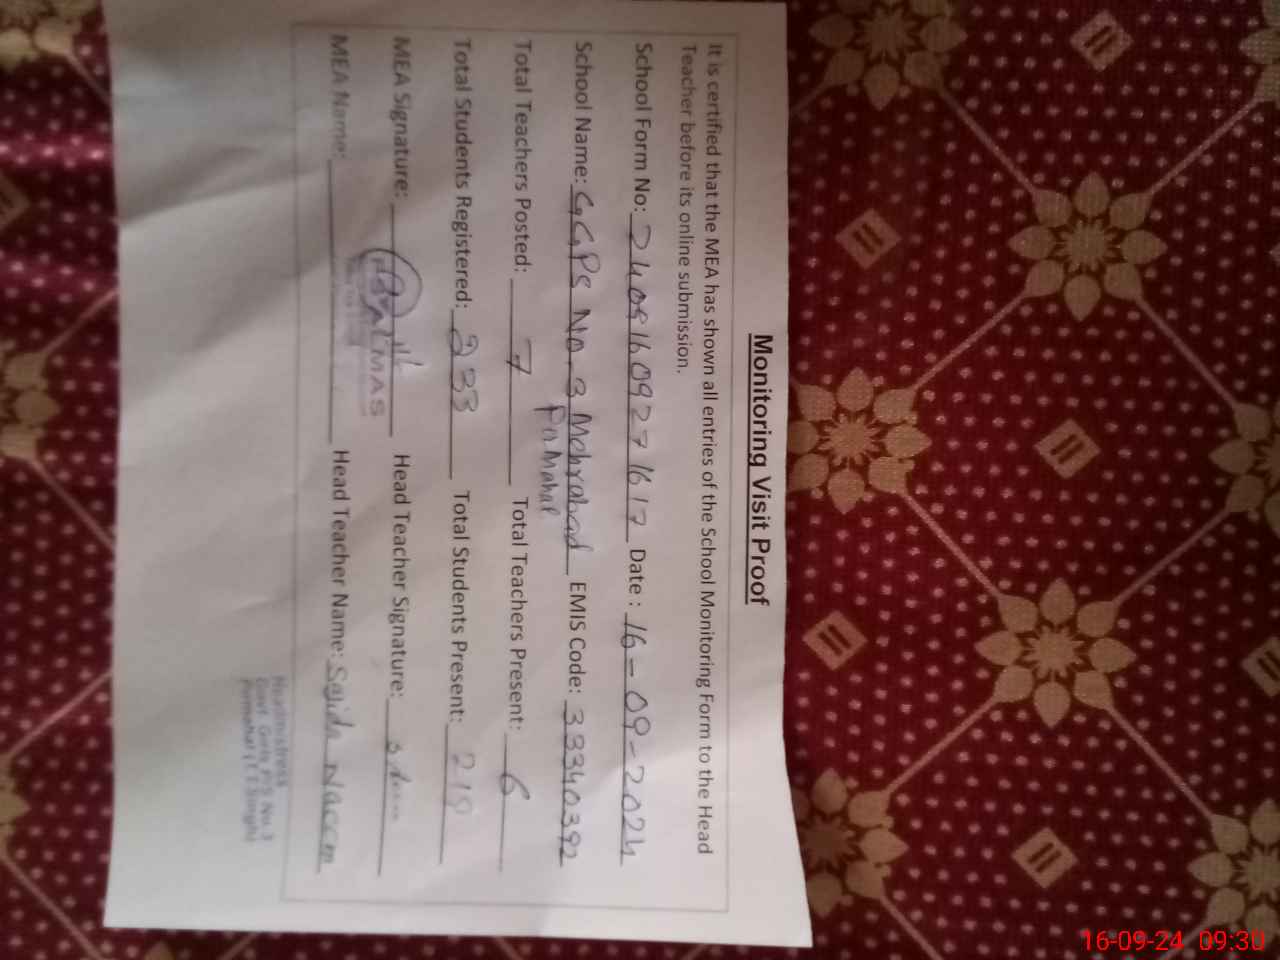 Monitoring Visit Proof
It is certified that the MEA has shown all entries of the School Monitoring Form to the Head
Teacher before its online submission.
School Form No: 240916092716 17 Date : 16-09-2024
School Name: GGPS No. 3 Mehrabad EMIS Code: 33340392
Pir Mahal
Total Teachers Posted: 7 Total Teachers Present: 6
Total Students Registered: 233 Total Students Present: 219
MEA Signature: Head Teacher Signature:
MEA Name: Head Teacher Name: Sajida Naeem
Headmistress
Govt. Girls P/S No.3
Pirmahal (T.T.Singh)
16-09-24 09:30